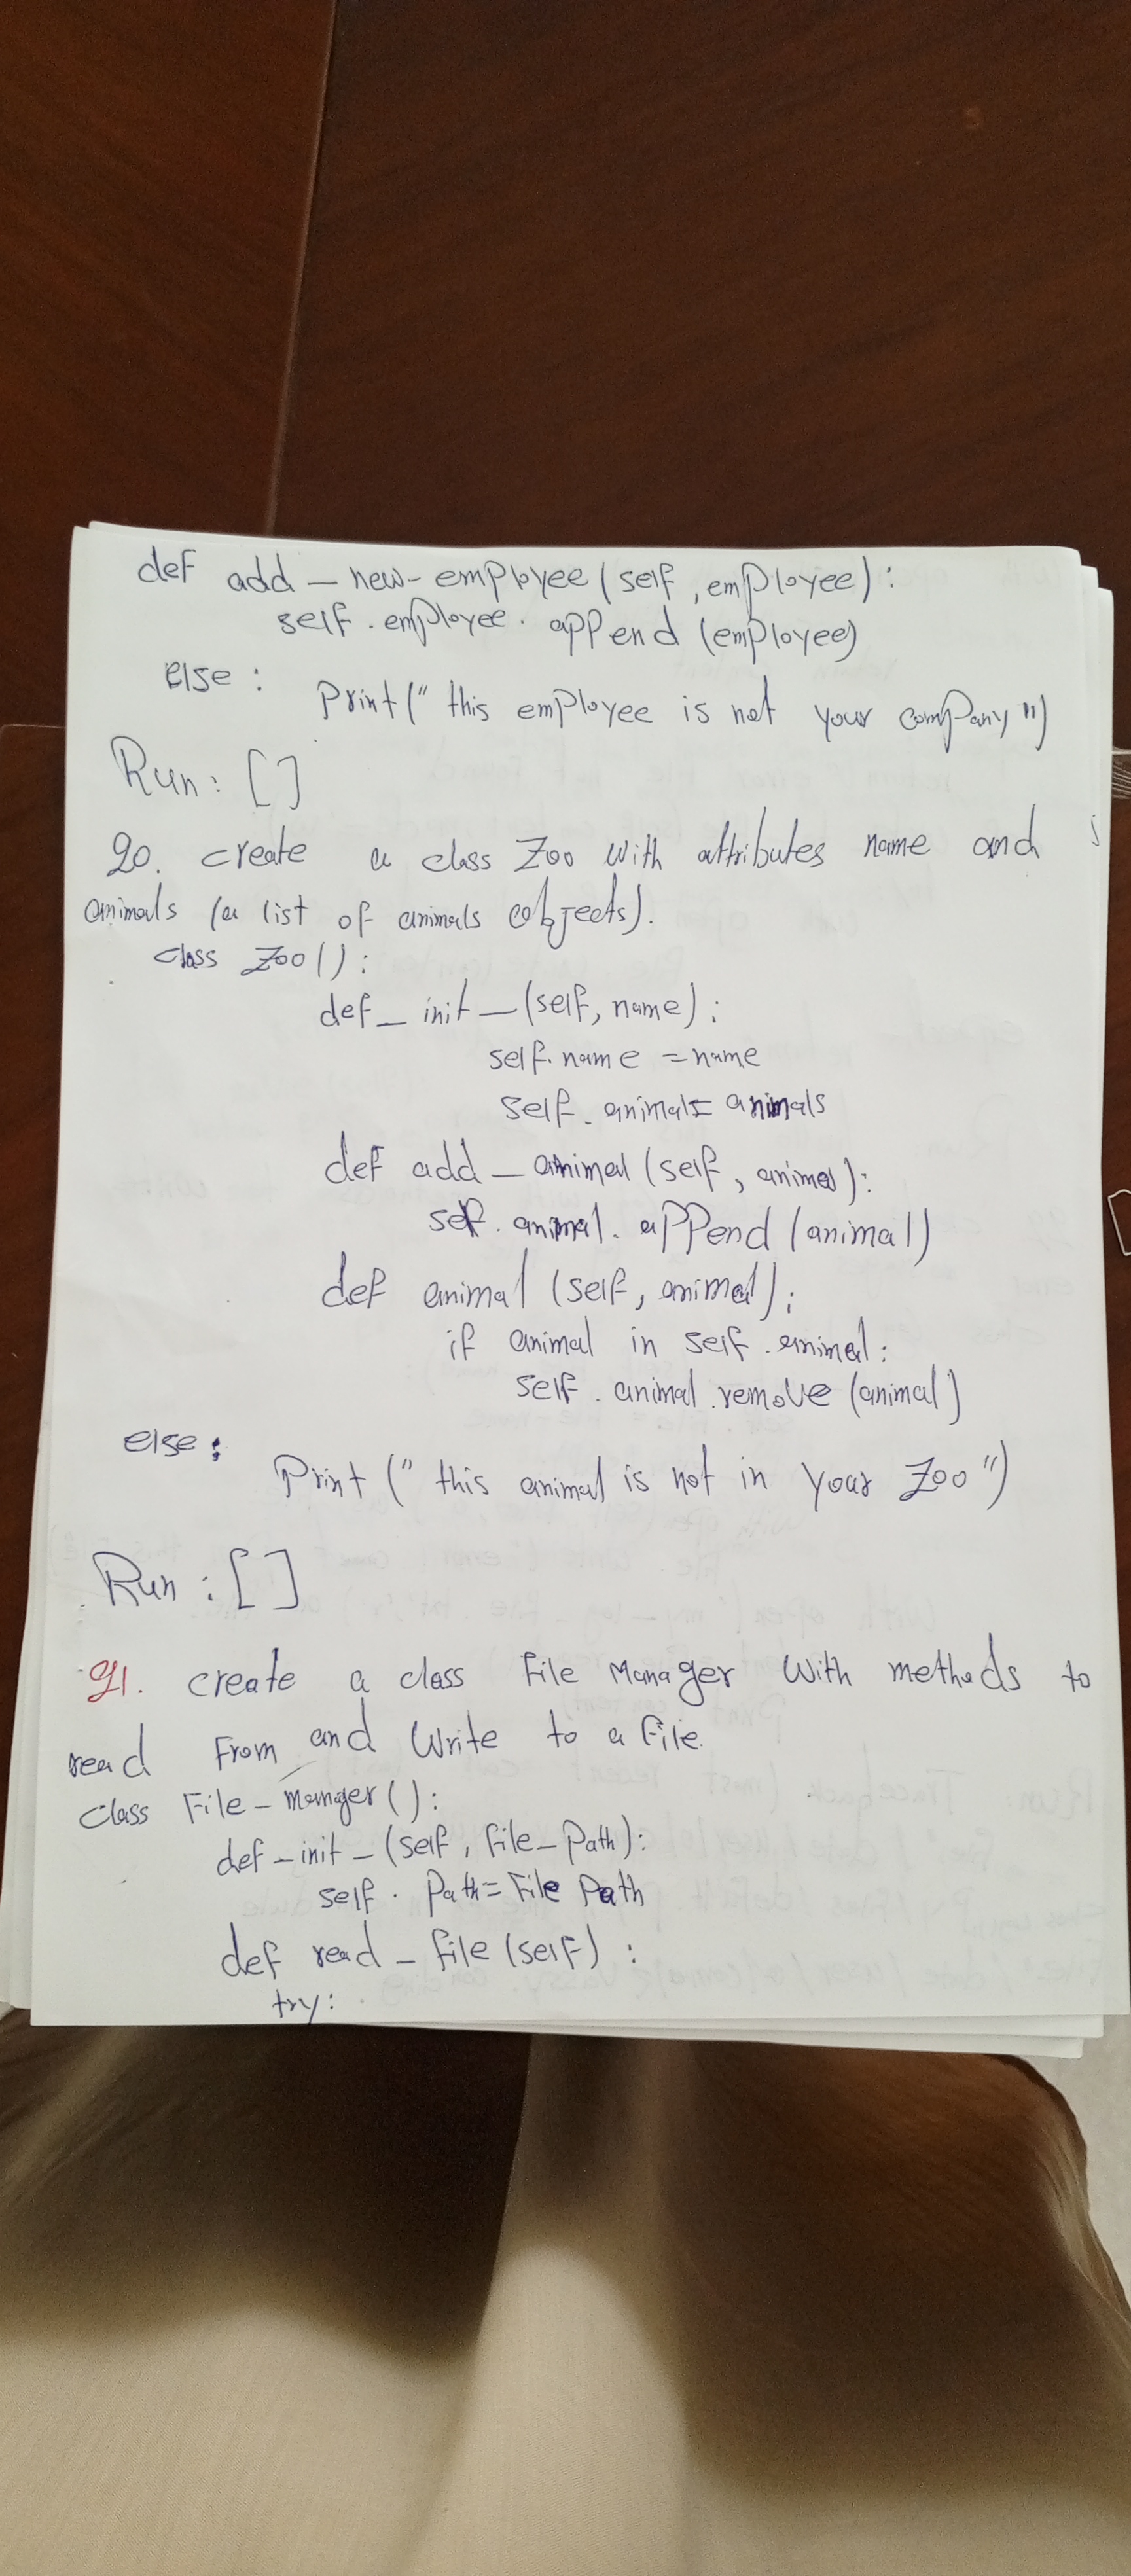 def add_new-employee(self, employee):
self.employee.append(employee)
else:
Print(" this employee is not your company")
Run: []
20. create a class Zoo with attributes name and
animals (a list of animals cobjects).
class Zoo():
def_init_(self, name):
self.name =name
self.animal= animals
def add_animal(self, animal):
self.animal.append(animal)
def animal(self, animal):
if animal in self.animal:
self.animal.remove(animal)
else:
Print(" this animal is not in your Zoo")
Run: []
21. create a class File Manager with methods to
read From and Write to a file.
class File-manger():
def_init_(self, file_Path):
self.Path=File Path
def read_file(self):
try: